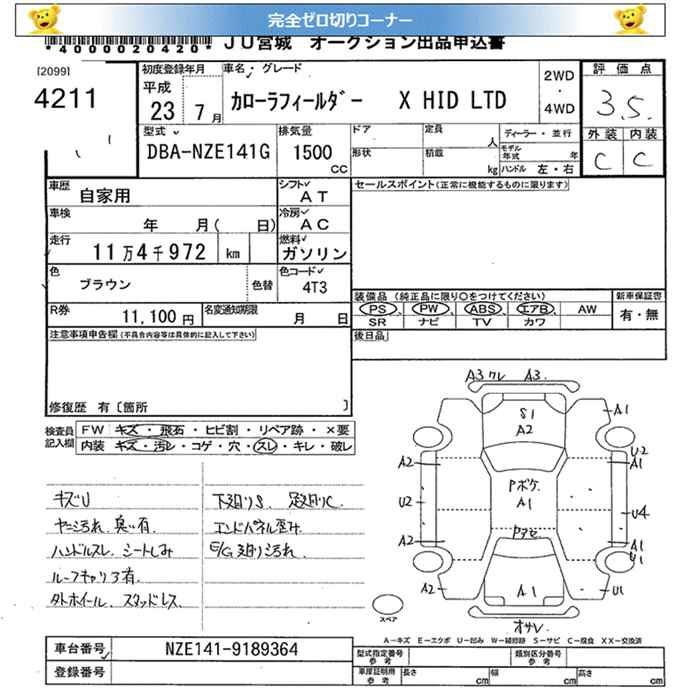 完全ゼロ切りコーナー
*40000020420* JU宮城 オークション出品申込書
[2099]
4211
初度登録年月
平成
23 7月
車名・グレード
カローラフィールダー X HID LTD
2WD
・
4WD
評価点
3.5
外装 内装
C C
型式
DBA-NZE141G
排気量
1500
CC
ドア
形状
定員
人
積載
kg
ディーラー・並行
モデル年式 年
ハンドル 左・右
車歴
自家用
シフト
AT
車検
年 月( 日)
冷房
AC
走行
11万4千972 km
燃料
ガソリン
色
ブラウン
色替
色コード
4T3
R券
11,100円
名変通知期限
月 日
セールスポイント(正常に機能するものに限ります)
装備品 (純正品に限り○をつけてください)
PS PW ABS エアB AW
SR ナビ TV カワ
新車保証書
有・無
後日品
注意事項申告欄(不具合内容等は具体的に記入して下さい)
修復歴 有〔箇所 〕
検査員記入欄
FW キズ・飛石・ヒビ割・リペア跡・×要
内装 キズ・汚レ・コゲ・穴・スレ・キレ・破レ
キズU
ヤニ汚れ、臭い有
ハンドルスレ、シートしみ
ルーフキャリア有
タトホイール、スタッドレス
下廻りS、足廻りC
エンドパネル歪み
E/G廻り汚れ
A3 ワレ A3
S1
A2
A1
A2
U2
A2
A2
Pボケ
A1
Pアセ
U2
A1
U4
A1
U1
U1
A1
オサレ
スペア
A-キズ E-エクボ U-凹み W-補修跡 S-サビ C-腐食 XX-交換済
車台番号
NZE141-9189364
登録番号
型式指定番号
参考
類別区分番号
参考
車庫証明用
参考
長さ cm 幅 cm 高さ cm